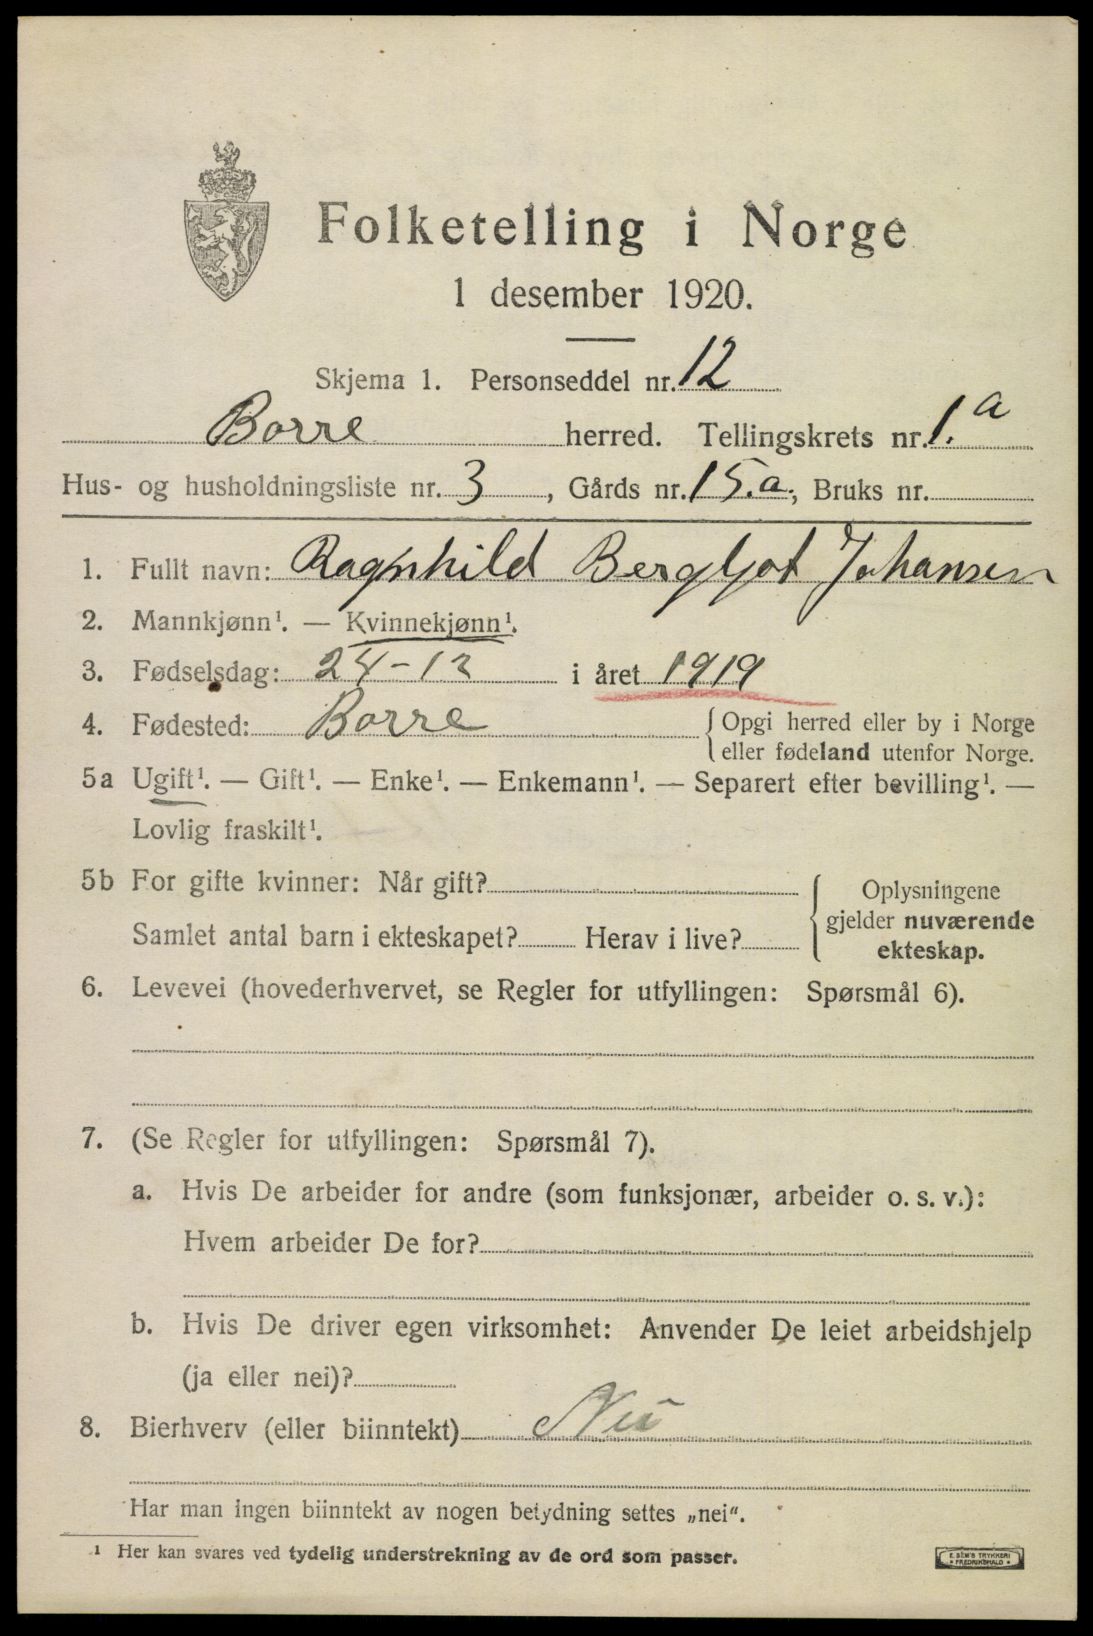 Folketelling i Norge
1 desember 1920.
Skjema 1. Personseddel nr. 12
Borre herred. Tellingskrets nr. 1.a
Hus- og husholdningsliste nr. 3, Gårds nr. 15.a., Bruks nr.
1. Fullt navn: Ragnhild Bergljot Johansen
2. Mannkjønn¹. — Kvinnekjønn¹.
3. Fødselsdag: 24-12 i året 1919
4. Fødested: Borre {Opgi herred eller by i Norge
eller fødeland utenfor Norge.
5a Ugift¹. — Gift¹. — Enke¹. — Enkemann¹. — Separert efter bevilling¹. —
Lovlig fraskilt¹.
5b For gifte kvinner: Når gift?
Samlet antal barn i ekteskapet? Herav i live?
{Oplysningene
gjelder nuværende
ekteskap.
6. Levevei (hovederhvervet, se Regler for utfyllingen: Spørsmål 6).
7. (Se Regler for utfyllingen: Spørsmål 7).
a. Hvis De arbeider for andre (som funksjonær, arbeider o. s. v.):
Hvem arbeider De for?
b. Hvis De driver egen virksomhet: Anvender De leiet arbeidshjelp
(ja eller nei)?
8. Bierhverv (eller biinntekt) Nei
Har man ingen biinntekt av nogen betydning settes „nei".
¹ Her kan svares ved tydelig understrekning av de ord som passer.
E. SEM'S TRYKKERI
FREDRIKSHALD